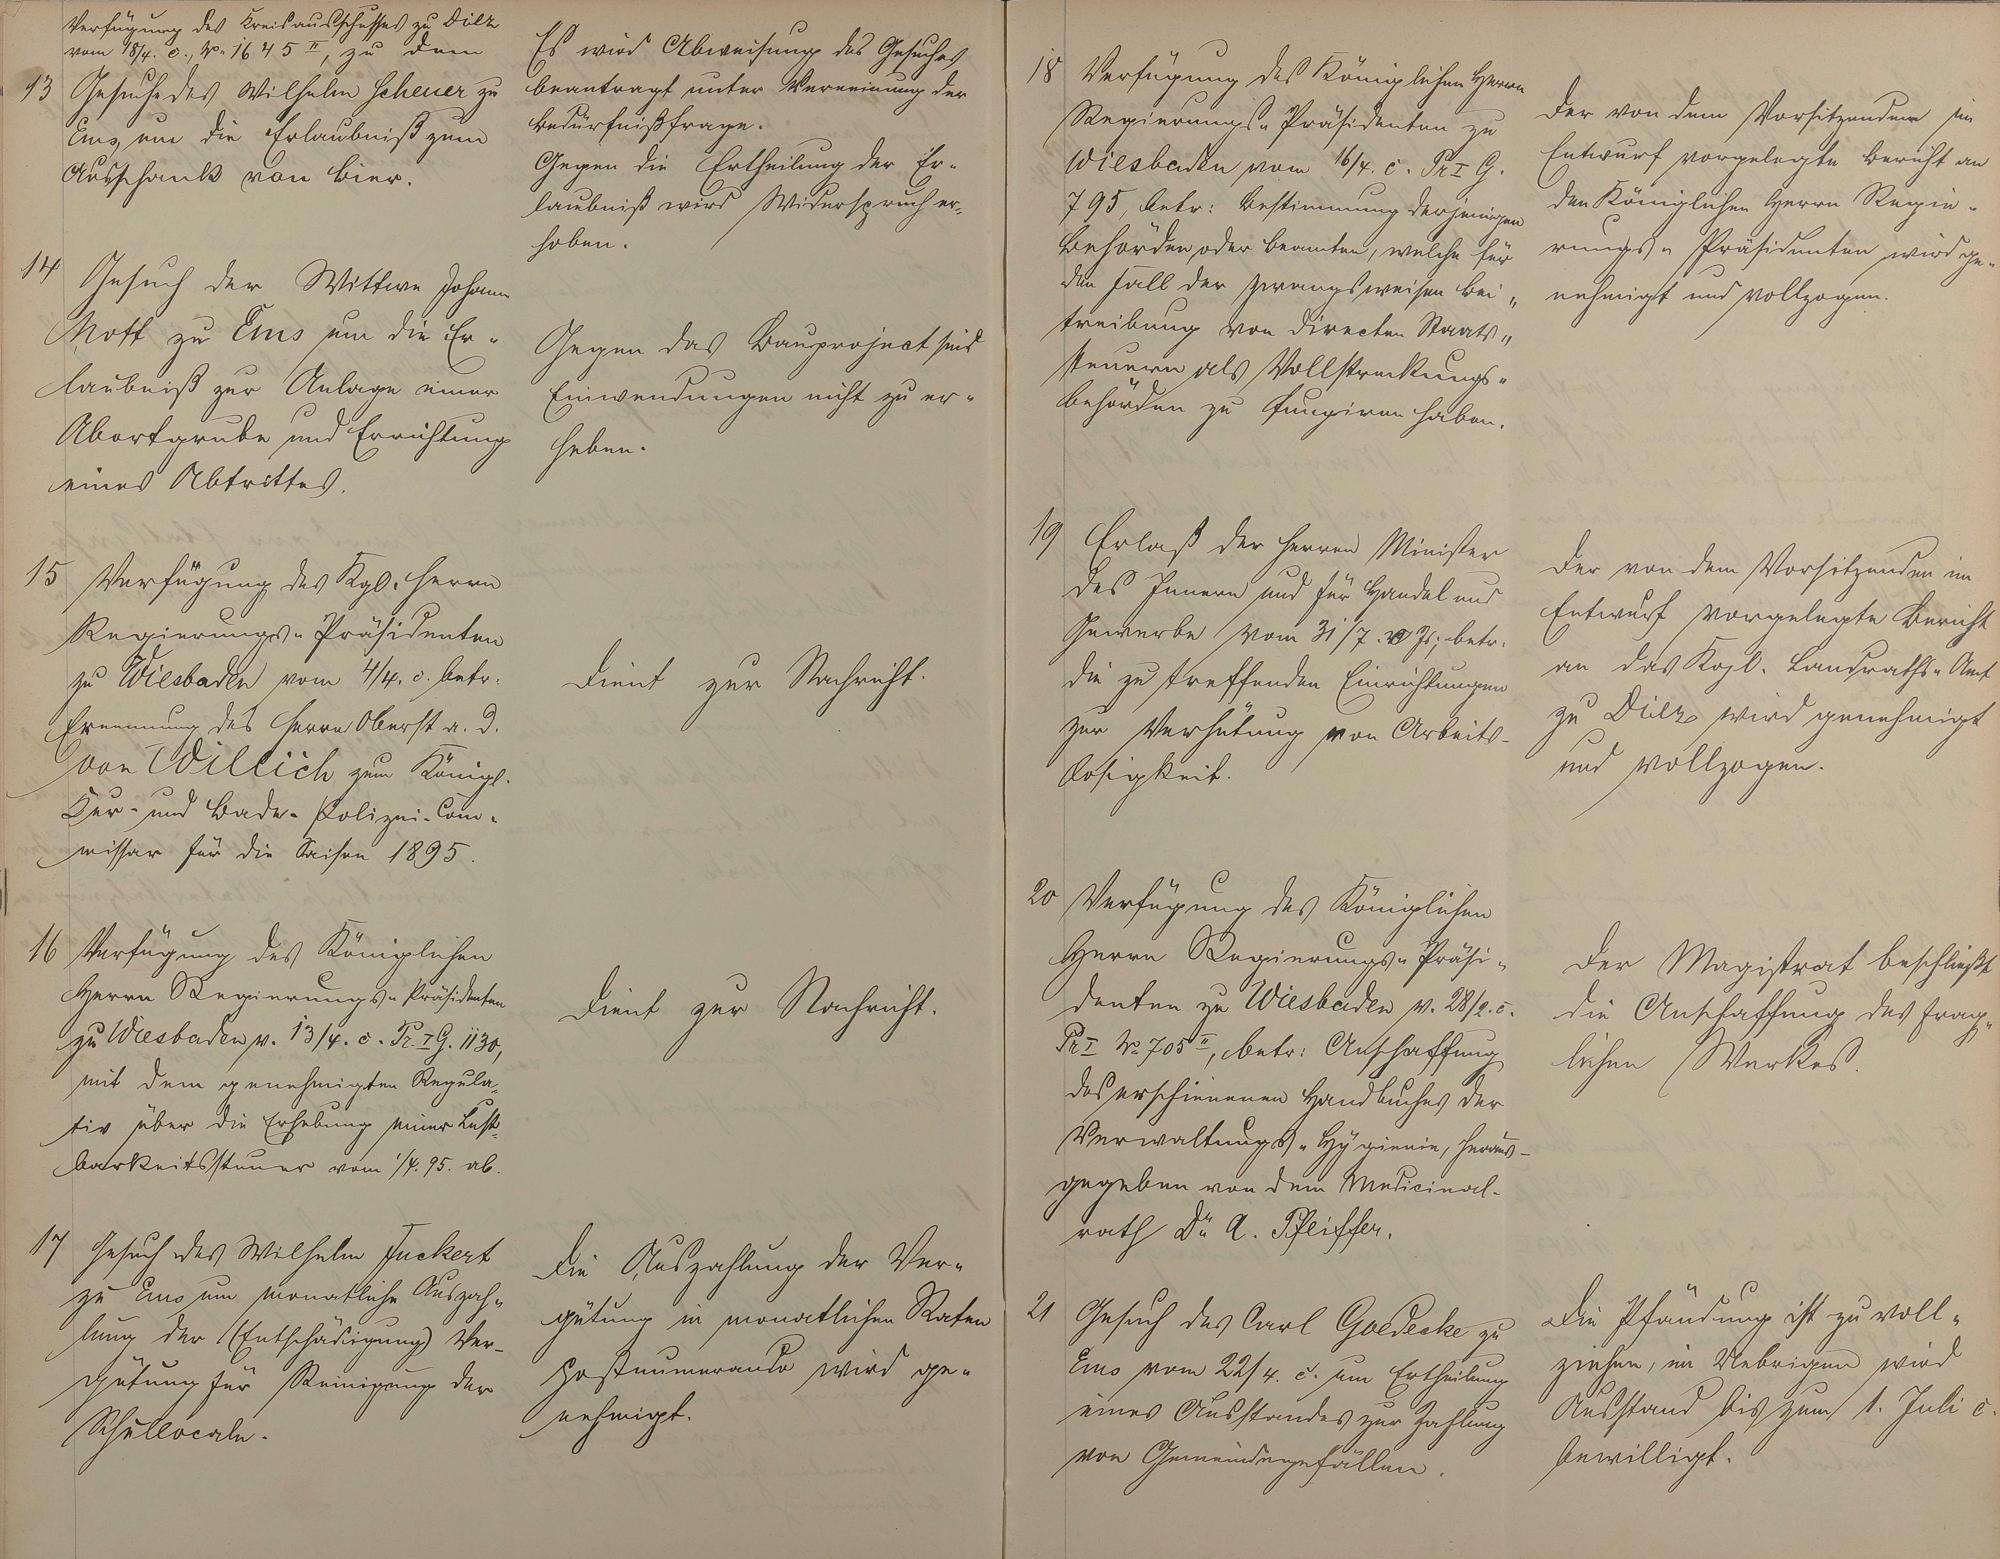 Verfügung des Kreisausschusses zu Diez
vom 18/4. c., No 1645 II, zu dem
13 Gesuche des Wilhelm Scheuer zu
Ems um die Erlaubniß zum
Ausschank von Bier.
Es wird Abweisung des Gesuches
beantragt unter Verneinung der
Bedürfnißfrage.
Gegen die Ertheilung der Er-
laubniß wird Widerspruch er-
hoben.
14 Gesuch der Wittwe Johann
Noff zu Ems um die Er-
laubniß zur Anlage einer
Abortgrube und Errichtung
eines Abtrittes.
Gegen das Bauproject sind
Einwendungen nicht zu er-
heben.
15 Verfügung des Kgl. Herrn
Regierungs-Präsidenten
zu Wiesbaden vom 4/4. c. betr.
Ernennung des Herrn Oberst a. D.
von Willich zum Königl.
Kur- und Bade-Polizei-Com-
missar für die Saison 1895.
Dient zur Nachricht.
16 Verfügung des Königlichen
Herrn Regierungs-Präsidenten
zu Wiesbaden v. 13/4. c. Pr. I G. 1130,
mit dem genehmigten Regula-
tiv über die Erhebung einer Lust-
barkeitssteuer vom 1/4. 95. ab.
Dient zur Nachricht.
17 Gesuch des Wilhelm Juckert
zu Ems um monatliche Auszah-
lung der (Entschädigung) Ver-
gütung für Reinigung der
Schullocale.
Die Auszahlung der Ver-
gütung in monatlichen Raten
postnumerando wird ge-
nehmigt.
18 Verfügung des Königlichen Herrn
Regierungs-Präsidenten zu
Wiesbaden vom 16/4. c. Pr I G.
795, betr: Bestimmung derjenigen
Behörden oder Beamten, welche für
den Fall der zwangsweisen Bei-
treibung von directen Staats-
steuern als Vollstreckungs-
behörden zu fungiren haben.
Der von dem Vorsitzenden im
Entwurf vorgelegte Bericht an
den Königlichen Herrn Regie-
rungs-Präsidenten wird ge-
nehmigt und vollzogen.
19 Erlaß der Herren Minister
des Innern und für Handel und
Gewerbe vom 31/7. v Js, betr.
die zu treffenden Einrichtungen
zur Verhütung von Arbeits-
losigkeit.
Der von dem Vorsitzenden im
Entwurf vorgelegte Bericht
an das Kgl. Landraths-Amt
zu Diez wird genehmigt
und vollzogen.
20 Verfügung des Königlichen
Herrn Regierungs-Präsi-
denten zu Wiesbaden v. 28/2. c.
Pr I No 705 II, betr: Anschaffung
des erschienenen Handbuches der
Verwaltungs-Hygienie, heraus-
gegeben von dem Medicinal-
rath Dr A. Pfeiffer.
Der Magistrat beschließt
die Anschaffung des frag-
lichen Werkes.
21 Gesuch des Carl Goedecke zu
Ems vom 22/4. c. um Ertheilung
eines Ausstandes zur Zahlung
von Gemeindegefällen.
Die Pfändung ist zu voll-
ziehen, im Uebrigen wird
Ausstand bis zum 1. Juli c.
bewilligt.